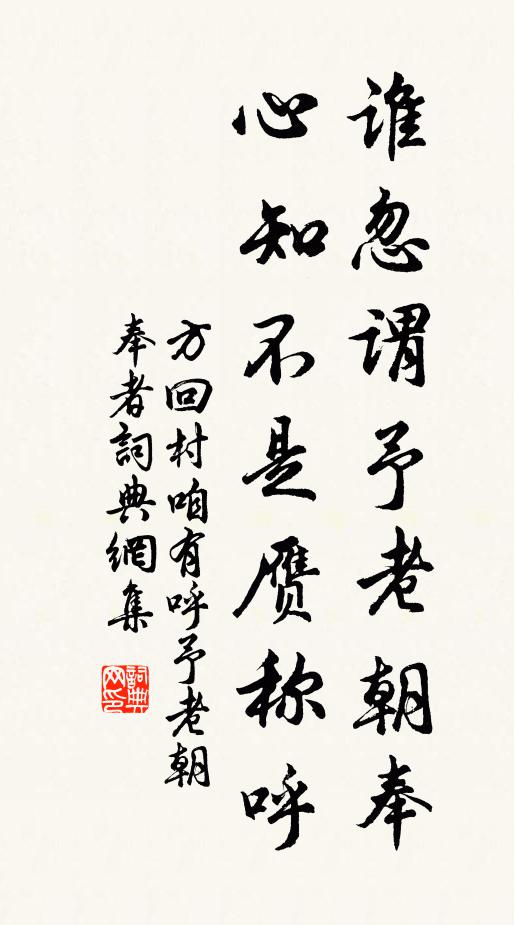 谁忽谓予老朝奉
心知不是赝称呼
方回村咱有呼予老朝
奉者詞典網集
詞典網印